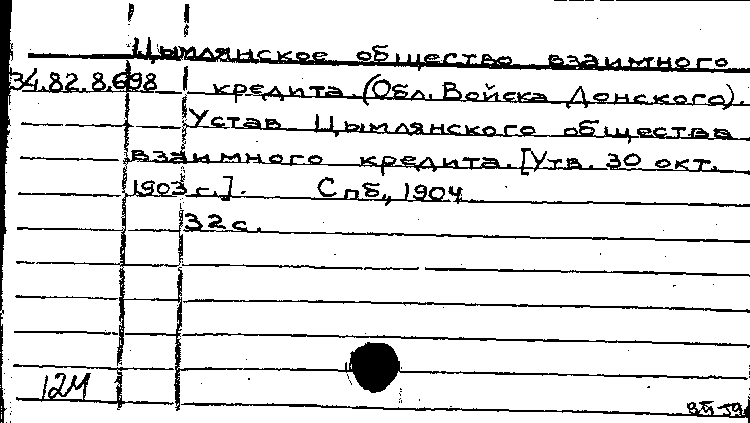 Цымлянское общество взаимного
34.82.8.698 кредита. (Обл. Войска Донского).
Устав Цымлянского общества
взаимного кредита. [Утв. 30 окт.
1903 г.]. Спб., 1904
32 с.